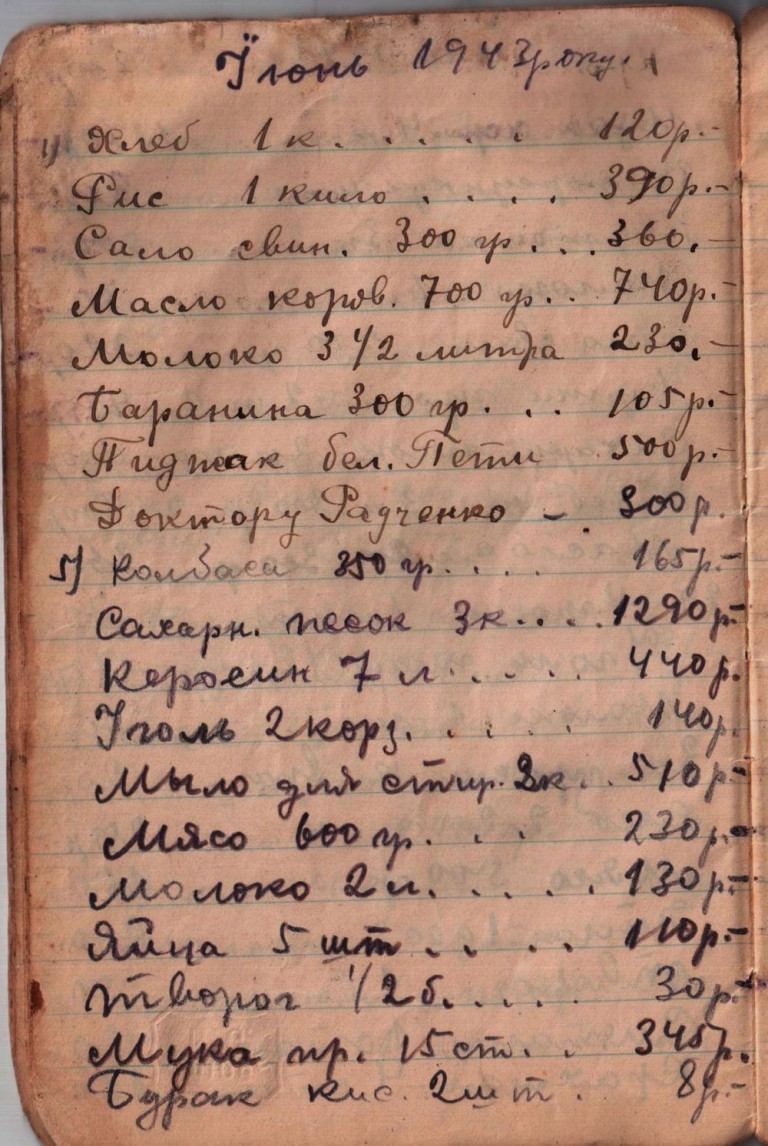 Їюнь 1943 року.
1) Хлеб 1 к. . . . . . 120р.-
Рис 1 кило . . . . 390р.-
Сало свин. 300 гр. . . 360.-
Масло коров. 700 гр. . . 740р.-
Молоко 3 1/2 литра 230.-
Баранина 300 гр. . . 105р.-
Пиджак бел. Пети 500р.-
Доктору Радченко - 300р.
5) Колбаса 350 гр. . . . 165р.-
Сахарн. песок 3к. . . . 1290р.-
Керосин 7 л. . . . . 440р.
Уголь 2 корз. . . . . 140р.
Мыло для стир. 3к. . 510р.-
Мясо 600 гр. . . . 230р.-
Молоко 2 л. . . . . 130р.-
Яйца 5 шт. . . . . 110р.-
Творог 1/2 б. . . . . 30р.-
Мука пр. 15 ст. . . 345р.
Бурак кис. 2 шт. . 8р.-